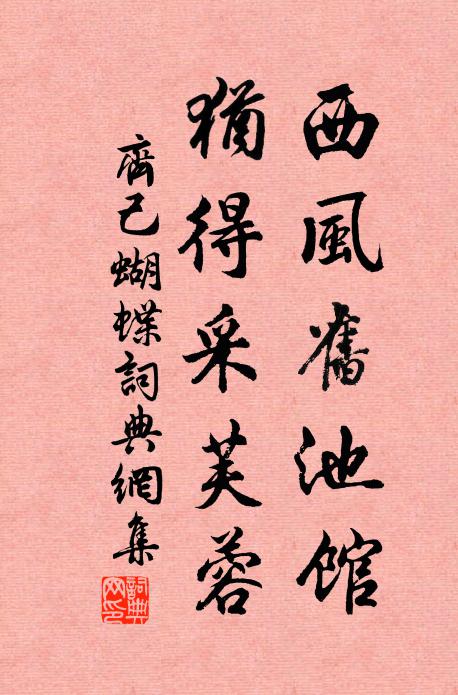 西風舊池館
猶得采芙蓉
齊己蝴蝶詞典網集
詞典網印